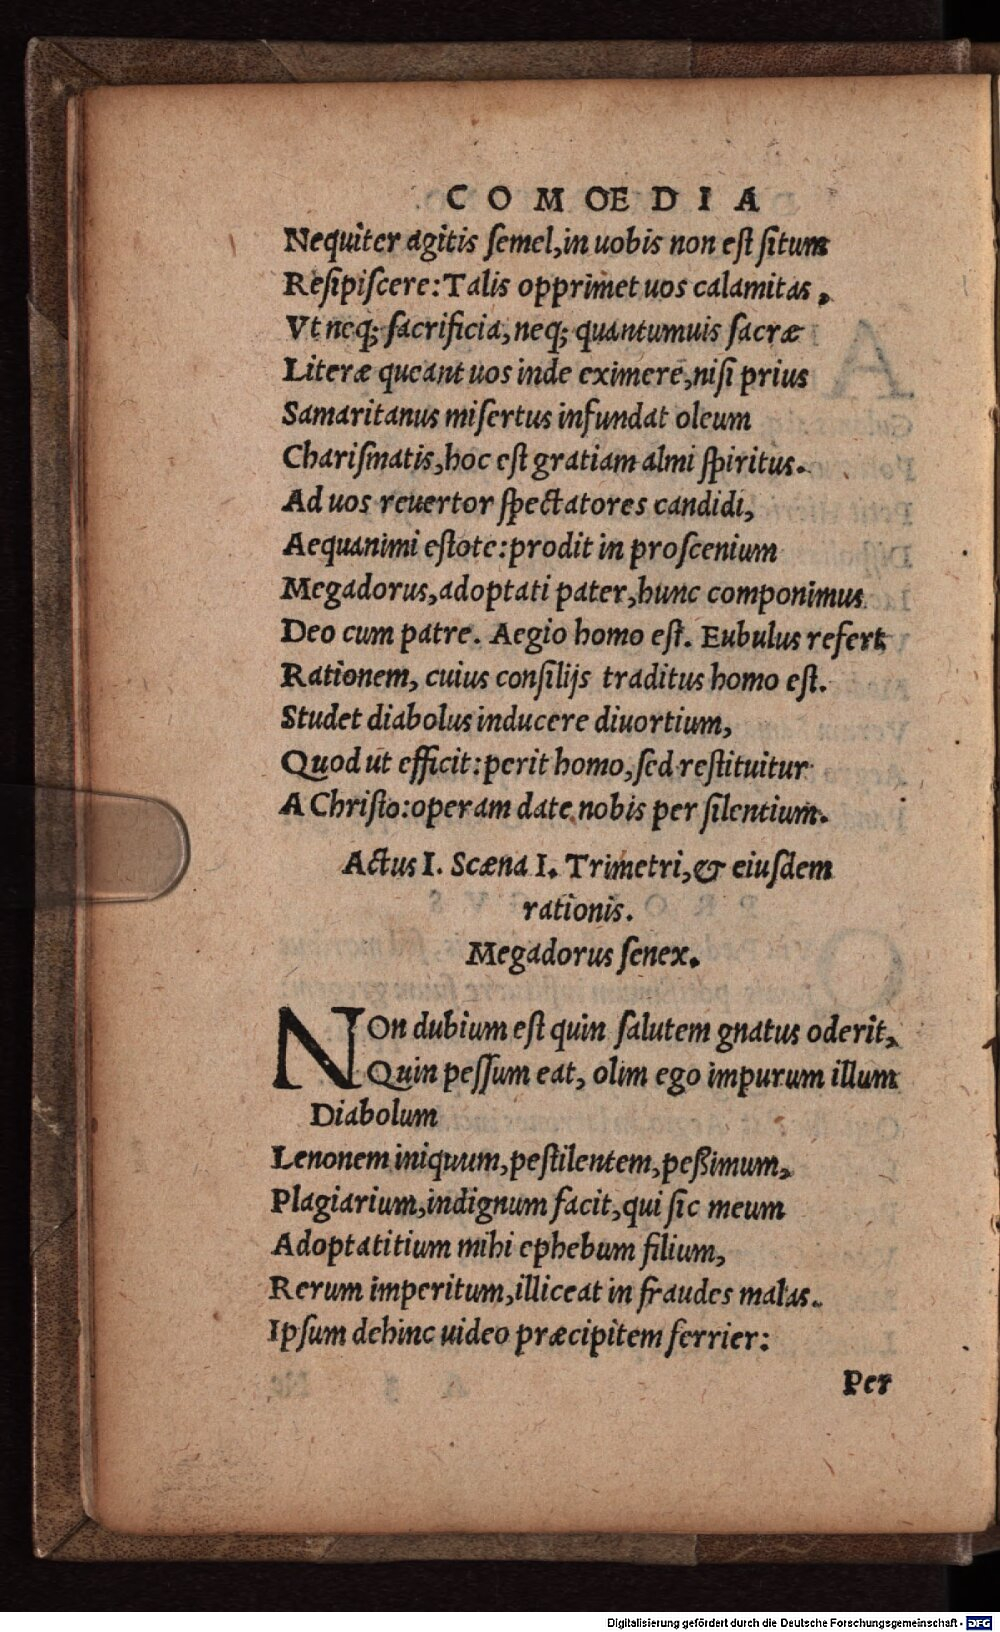 COMOEDIA
Nequiter agitis ſemel,in uobis non eſt ſitum
Reſipiſcere:Talis opprimet uos calamitas,
Vt neq; ſacrificia,neq; quantumuis ſacræ
Literæ queant uos inde eximere,niſi prius
Samaritanus miſertus infundat oleum
Chariſmatis,hoc eſt gratiam almi ſpiritus.
Ad uos reuertor ſpectatores candidi,
Aequanimi eſtote:prodit in proſcenium
Megadorus,adoptati pater,hunc componimus
Deo cum patre. Aegio homo eſt. Eubulus refert
Rationem, cuius conſilijs traditus homo eſt.
Studet diabolus inducere diuortium,
Quod ut efficit:perit homo,ſed reſtituitur
A Chriſto:operam date nobis per ſilentium.
Actus I. Scæna I. Trimetri,& eiuſdem
rationis.
Megadorus ſenex.
NOn dubium eſt quin ſalutem gnatus oderit,
Quin peſſum eat, olim ego impurum illum
Diabolum
Lenonem iniquum,peſtilentem,peßimum,
Plagiarium,indignum facit,qui ſic meum
Adoptatitium mihi ephebum filium,
Rerum imperitum,illiceat in fraudes malas.
Ipſum dehinc uideo præcipitem ferrier:
Per
Digitalisierung gefördert durch die Deutsche Forschungsgemeinschaft - DFG